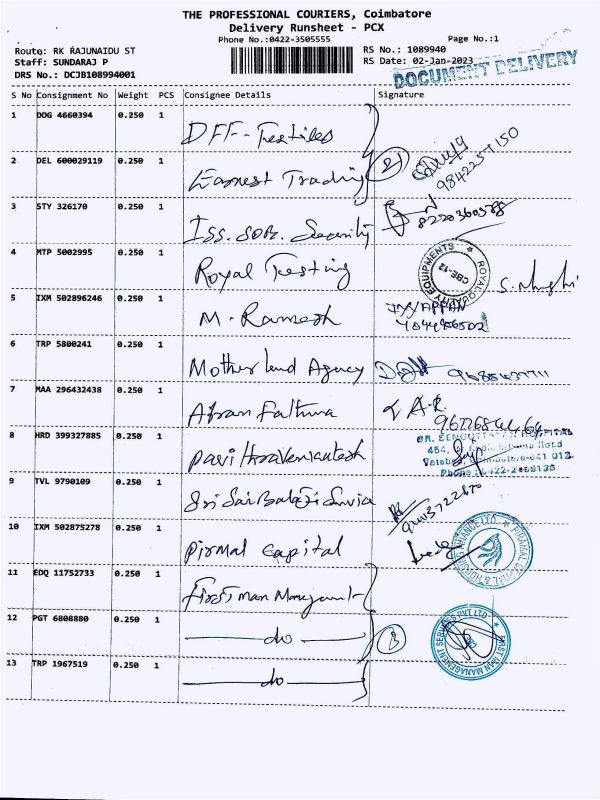 THE PROFESSIONAL COURIERS, Coimbatore
Delivery Runsheet - PCX
Phone No.:0422-3505555
Page No.:1
Route: RK RAJUNAIDU ST
RS No.: 1089940
Staff: SUNDARAJ P
RS Date: 02-Jan-2023
DRS No.: DCJB108994001
DOCUMENT DELIVERY
S No Consignment No Weight PCS Consignee Details Signature
1 DDG 4660394 0.250 1 DFF-Textiles
2 DEL 600029119 0.250 1 Earnest Trading 2
3 STY 326170 0.250 1 Iss. SDB. Security 8220360588
4 MTP 5002995 0.250 1 Royal Testing
ROYAL QUALITY EQUIPMENTS CBE-12
5 IXM 502896246 0.250 1 M. Ramesh
6 TRP 5800241 0.250 1 Mother land Agency
7 MAA 296432438 0.250 1 Afran Fathima
8 HRD 399327885 0.250 1 Pavithravenkatesh
9 TVL 9790109 0.250 1 Sri Sai Balaji Service
10 IXM 502875278 0.250 1 Pirmal Capital
11 EDQ 11752733 0.250 1 First man Management
12 PGT 6808880 0.250 1 do 3
13 TRP 1967519 0.250 1 do